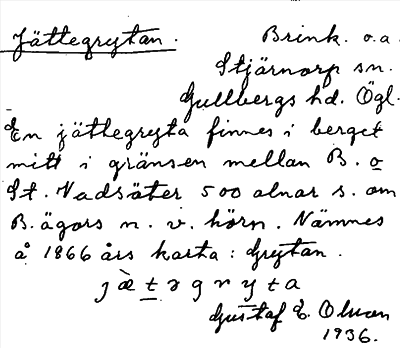 Jättegrytan. Brink. o.a.
Stjärnorp sn.
Gullbergs hd. Ögl.
En jättegryta finnes i berget
mitt i gränsen mellan B. o
St. Vadsäter 500 alnar s. om
B. ägors n. v. hörn. Nämnes
å 1866 års karta: Grytan.
jæ̀təgryta
Gustaf E. Olsson
1936.